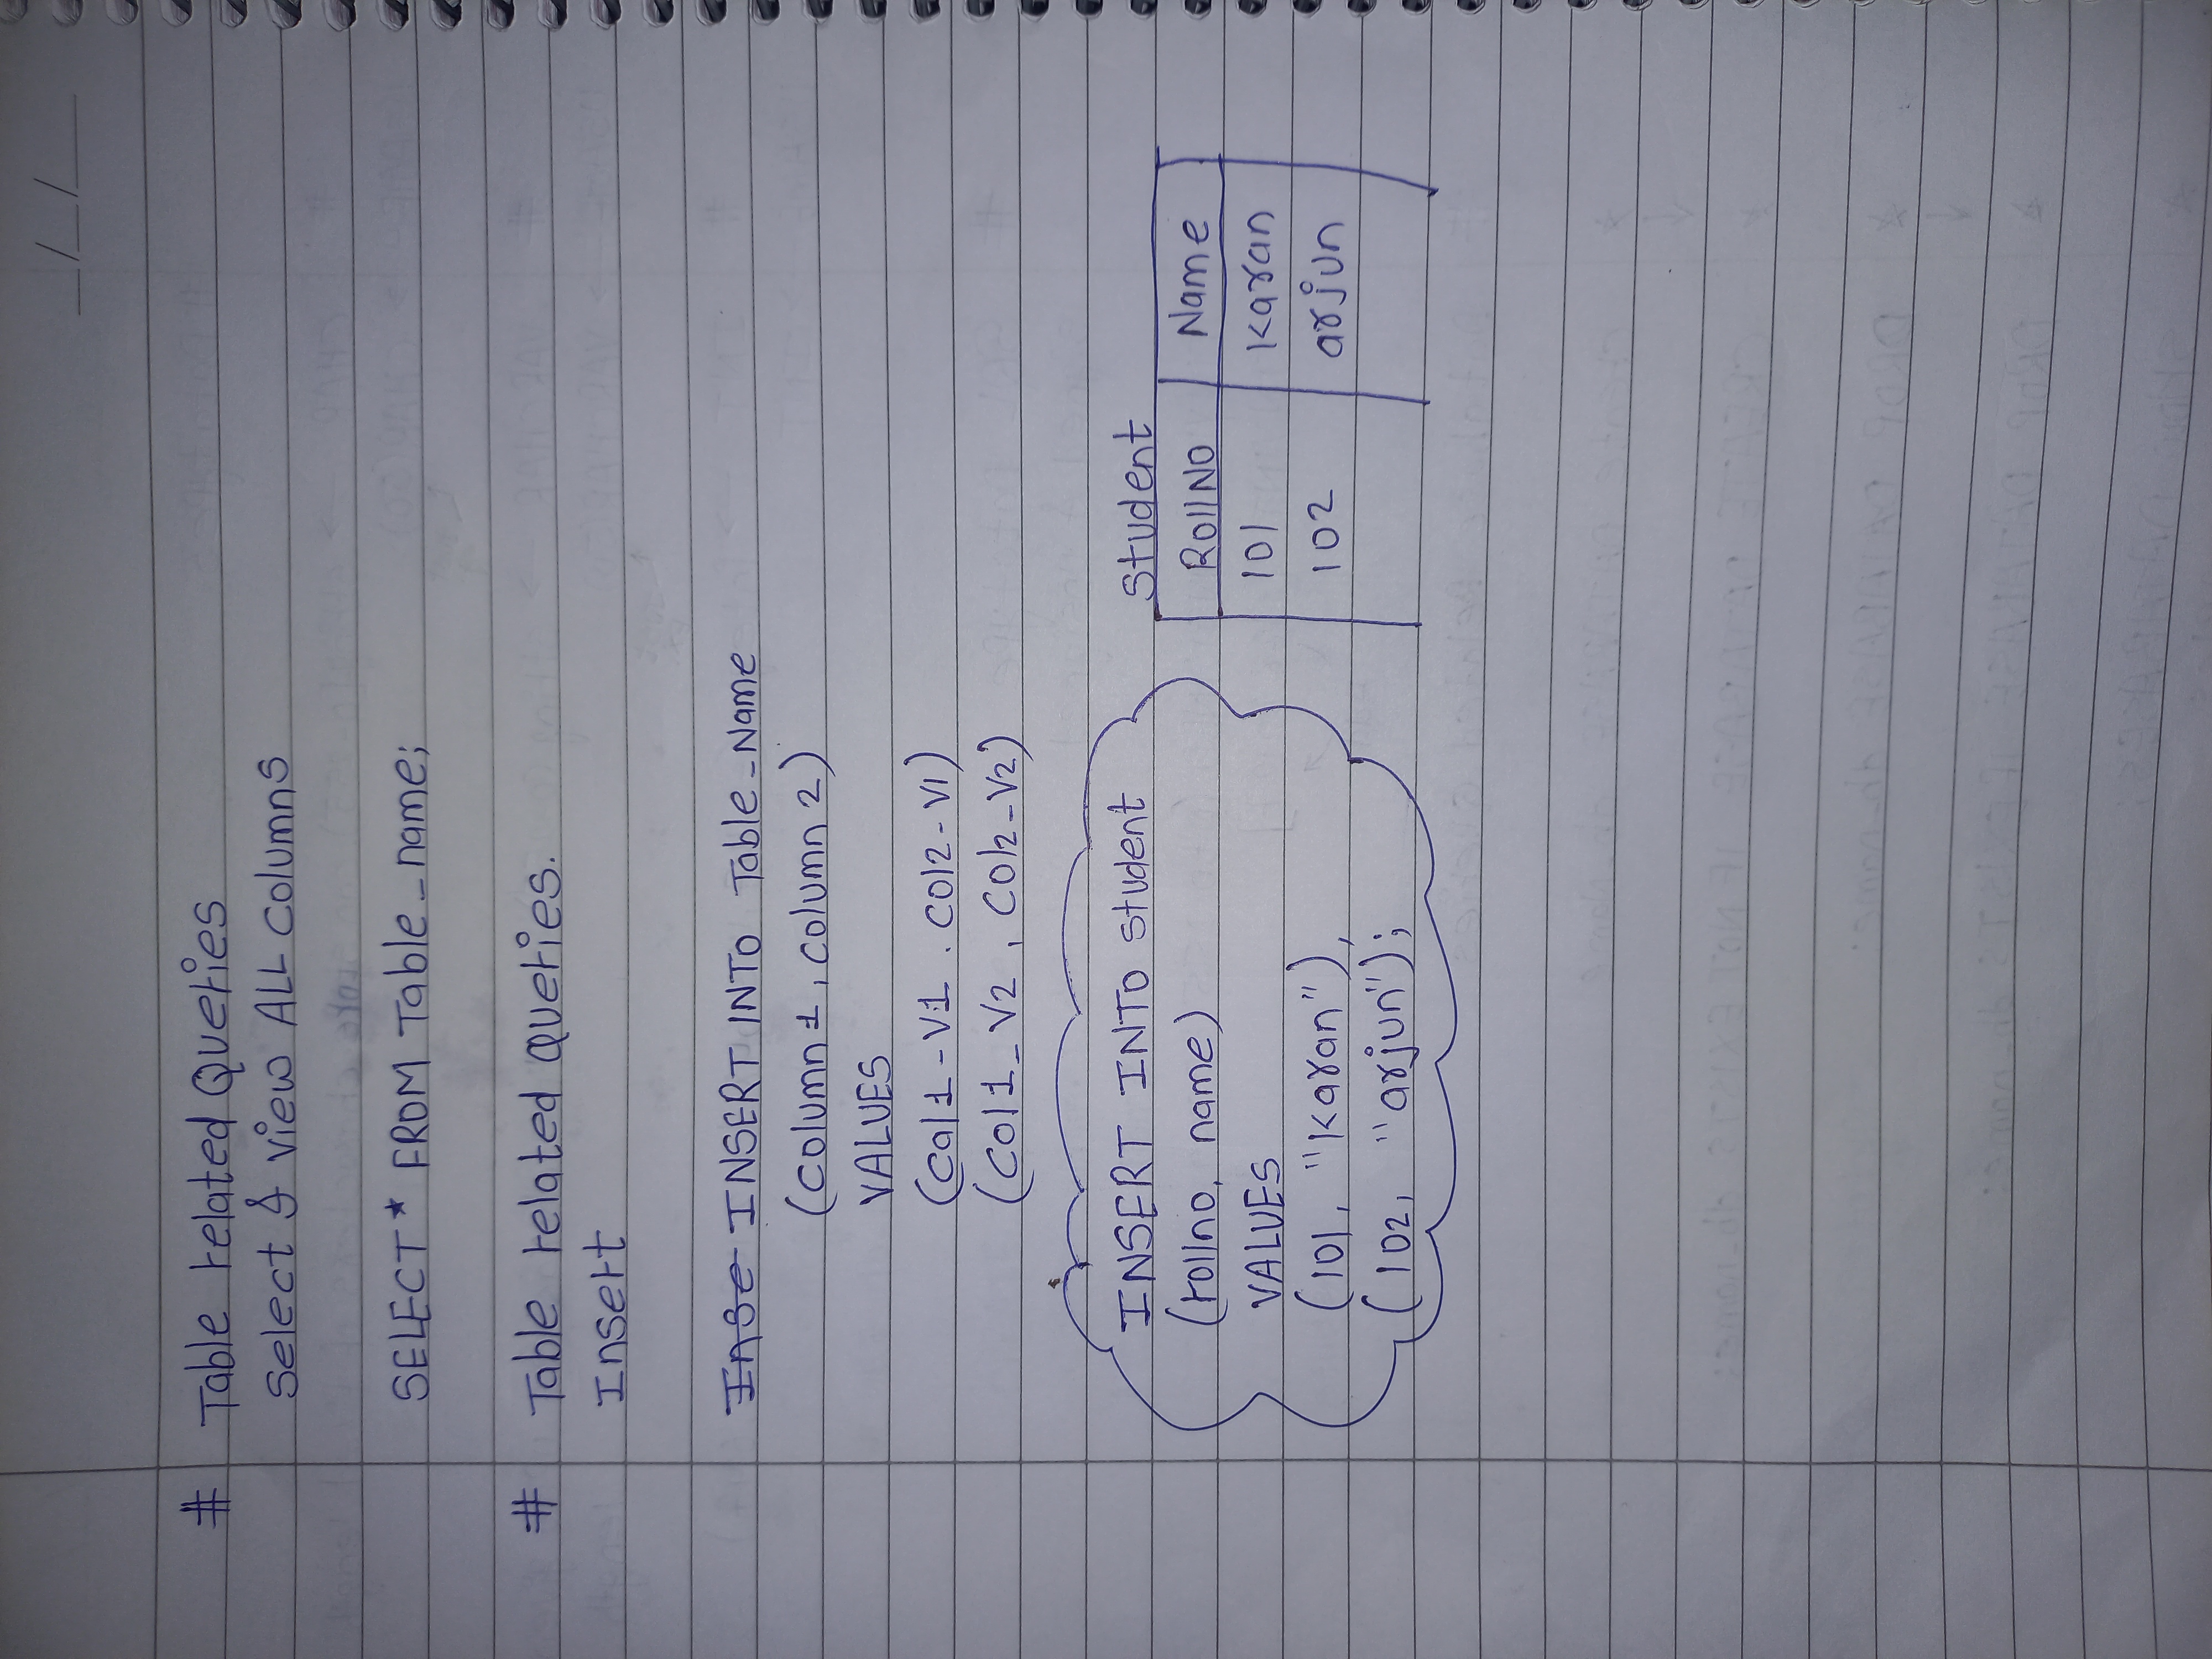 _/_/_
# Table related Queries
Select & view ALL Columns
SELECT * FROM Table_name;
# Table related queries.
Insert
Inse INSERT INTO Table_Name
(column 1, column 2)
VALUES
(Col1-V1 . Col2-V1)
(Col1_V2 , Col2-V2)
INSERT INTO student
(rollno, name)
VALUES
(101, "Karan"),
(102, "arjun");
Student
RollNO Name
101 Karan
102 arjun